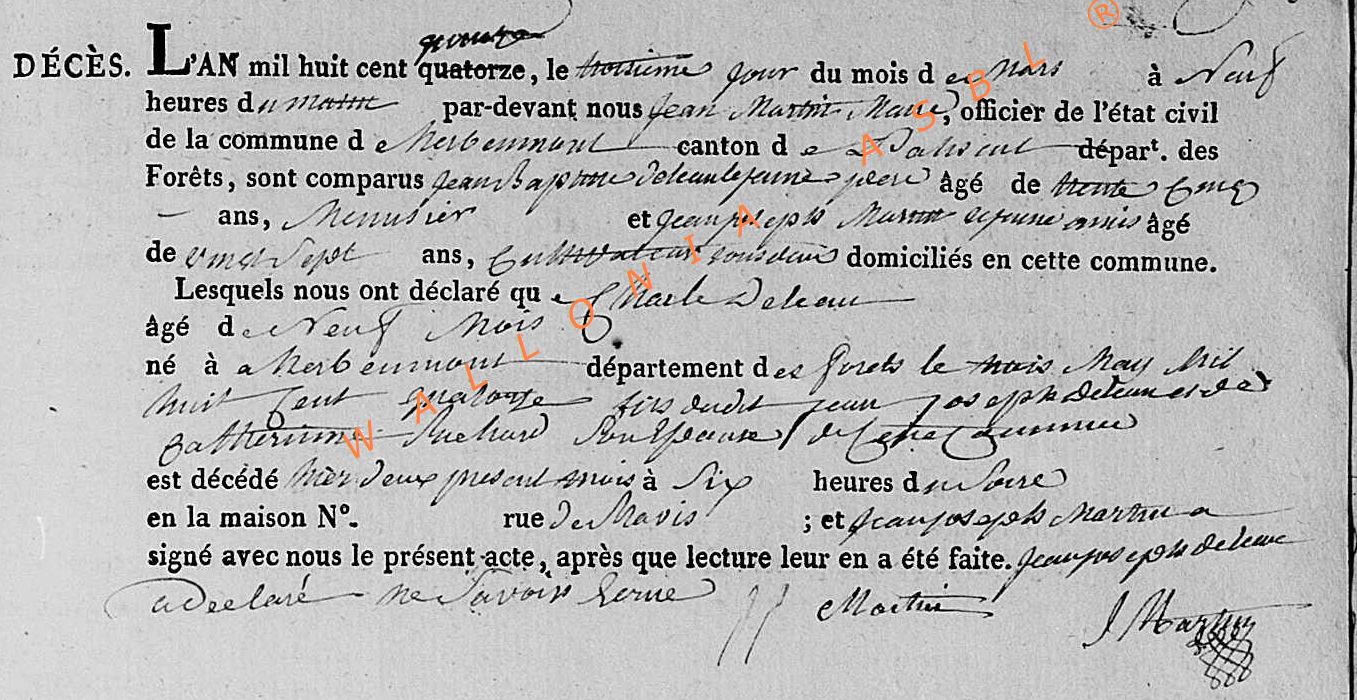 quinze
DÉCÈS. L'AN mil huit cent quatorze, le troisieme jour du mois de Mars à Neuf
heures du matin par-devant nous Jean Martin Maire, officier de l'état civil
de la commune de Herbeumont canton de Paliseul départ. des
Forêts, sont comparus Jean Baptiste Deleau le jeune pere âgé de trente Cinq
ans, Menusier et jean joseph Martin le jeune amis âgé
de vingt Sept ans, Cultivateur tous deux domiciliés en cette commune.
Lesquels nous ont déclaré que Charle Deleau
âgé de Neuf Mois
né à herbeumont département des forets le mois May Mil
huit Cent quatorze fils dudit jean joseph Deleau et de
Catherinne Son Epouse de Cette Commune
est décédé hier deux present mois à Six heures du Soire
en la maison N°. rue de ; et jean joseph Martin a
signé avec nous le présent acte, après que lecture leur en a été faite. jean joseph deleau
a declaré ne Savoir Ecrire Martin J Martin
WALLONIA ASBL ®